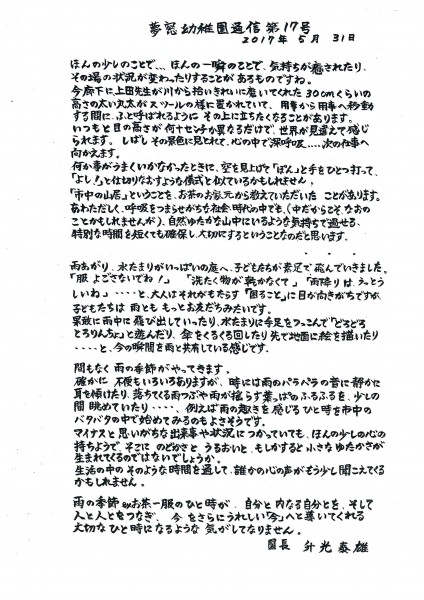 夢窓幼稚園通信 第17号
2017年 5月 31日
ほんの少しのことで、、、ほんの一瞬のことで、気持ちが癒されたり、
その場の状況が変わったりすることがあるものですね。
今廊下に上田先生が川から拾いきれいに磨いてくれた30cmくらいの
高さの太い丸太がスツールの様に置かれていて、用事から用事へ移動
する間に、ふと呼ばれるように その上に立ちたくなることがあります。
いつもと目の高さが何十センチか異なるだけで、世界が見違えて感じ
られます。 しばしその景色に見とれて、心の中で深呼吸‥‥次の仕事へ
向かえます。
何か事がうまくいかなかったときに、空を見上げて「ぽん」と手をひとつ打って、
「よし!」と仕切りなおすような儀式と似ているかもしれません。
「市中の山居」ということを、お茶のお家元から教えていただいたことがあります。
あわただしく、呼吸をつまらせがちな社会・時代の中でも、(中だからこそ、なおの
ことかもしれませんが)、自然ゆたかな山中にいるような気持ちで過せる、
特別な時間を短くても確保し、大切にするということなのだと思います。
・ ・ ・
雨あがり、水たまりがいっぱいの庭へ、子どもたちが素足で飛んでいきました。
「服 よごさないでね!」 「洗たく物が乾かなくて」 「雨降りは、うっとう
しいね」‥‥と、大人はそれがもたらす「困ること」に目が向きがちですが、
子どもたちは 雨とも もっとお友だちみたいです。
果敢に雨中に飛び出していったり、水たまりに手足をつっこんで「どろどろ
とろりんちょ」と遊んだり、傘をくるくる回したり先で地面に絵を描いたり
‥‥‥と、今の瞬間を雨と共有している感じです。
間もなく 雨の季節がやってきます。
確かに 不便もいろいろありますが、時には雨のパラパラの音に静かに
耳を傾けたり、落ちてくる雨つぶや雨が揺らす葉っぱのふるふるを、少しの
間 眺めていたり‥‥、例えば雨の趣きを感じるひと時を市中の
バタバタの中で始めてみるのもよさそうです。
マイナスと思いがちな出来事や状況につかっていても、ほんの少しの心の
持ちようで、そこに のどかさと うるおいと、もしかすると小さなゆたかさが
生まれてくるのではないでしょうか。
生活の中の そのような時間を通して、誰かの心の声がもう少し聞こえてくる
かもしれません。
雨の季節のお茶一服のひと時が、自分と内なる自分とを、そして
人と人とをつなぎ、今をさらにうれしい「今」へと導いてくれる
大切なひと時になるような 気がしてなりません。
園長 升光泰雄